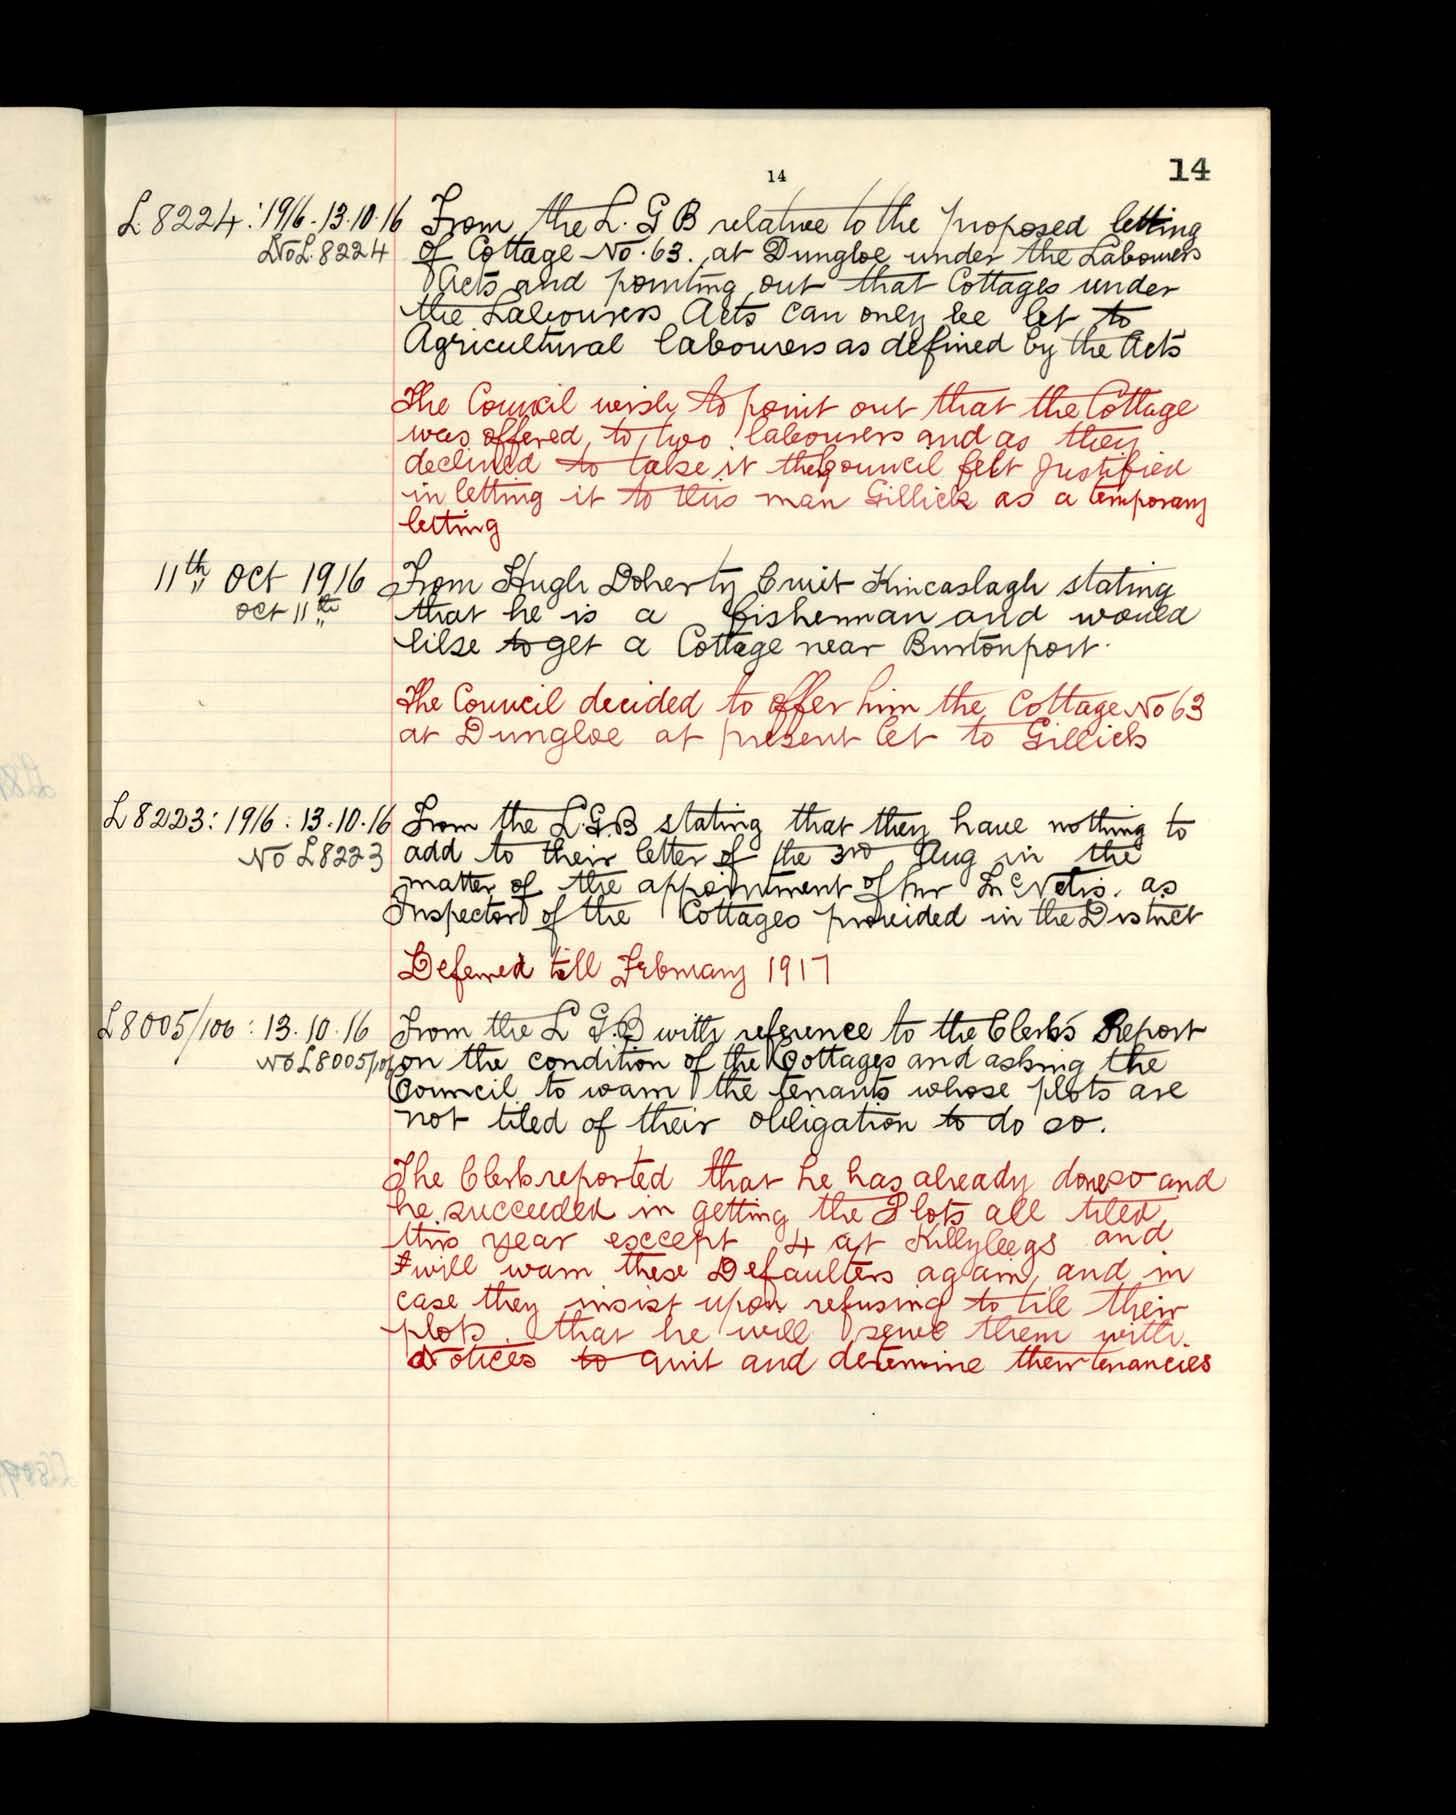 14
14
L. 8224 : 1916 - 13.10.16 From the L. G B relative to the proposed letting
No L. 8224 of Cottage No. 63. at Dungloe under the Labourers
Acts and pointing out that Cottages under
the Labourers Acts can only be let to
Agricultural labourers as defined by the Acts
The Council wish to point out that the Cottage
was offered to two labourers and as they
declined to take it the Council felt justified
in letting it to this man Gillick as a temporary
letting
11th Oct 1916 From Hugh Doherty Cruit Kincaslagh stating
Oct 11th that he is a fisherman and would
like to get a Cottage near Burtonport.
The Council decided to offer him the Cottage No 63
at Dungloe at present let to Gillick
L 8223 : 1916 : 13.10.16 From the L.G.B stating that they have nothing to
No L8223 add to their letter of the 3rd Aug in the
matter of the appointment of Mr as
Inspector of the Cottages provided in the District
Deferred till February 1917
L8005/100 : 13.10.16 From the L G.B with reference to the Clerk's Report
No L8005/ on the condition of the Cottages and asking the
Council to warn the tenants whose plots are
not tiled of their obligation to do so.
The Clerk reported that he has already done so and
he succeeded in getting the Plots all tiled
this year except 4 at Killybegs and
will warn these Defaulters again and in
case they insist upon refusing to till their
plots. that he will serve them with
Notices to quit and determine their tenancies